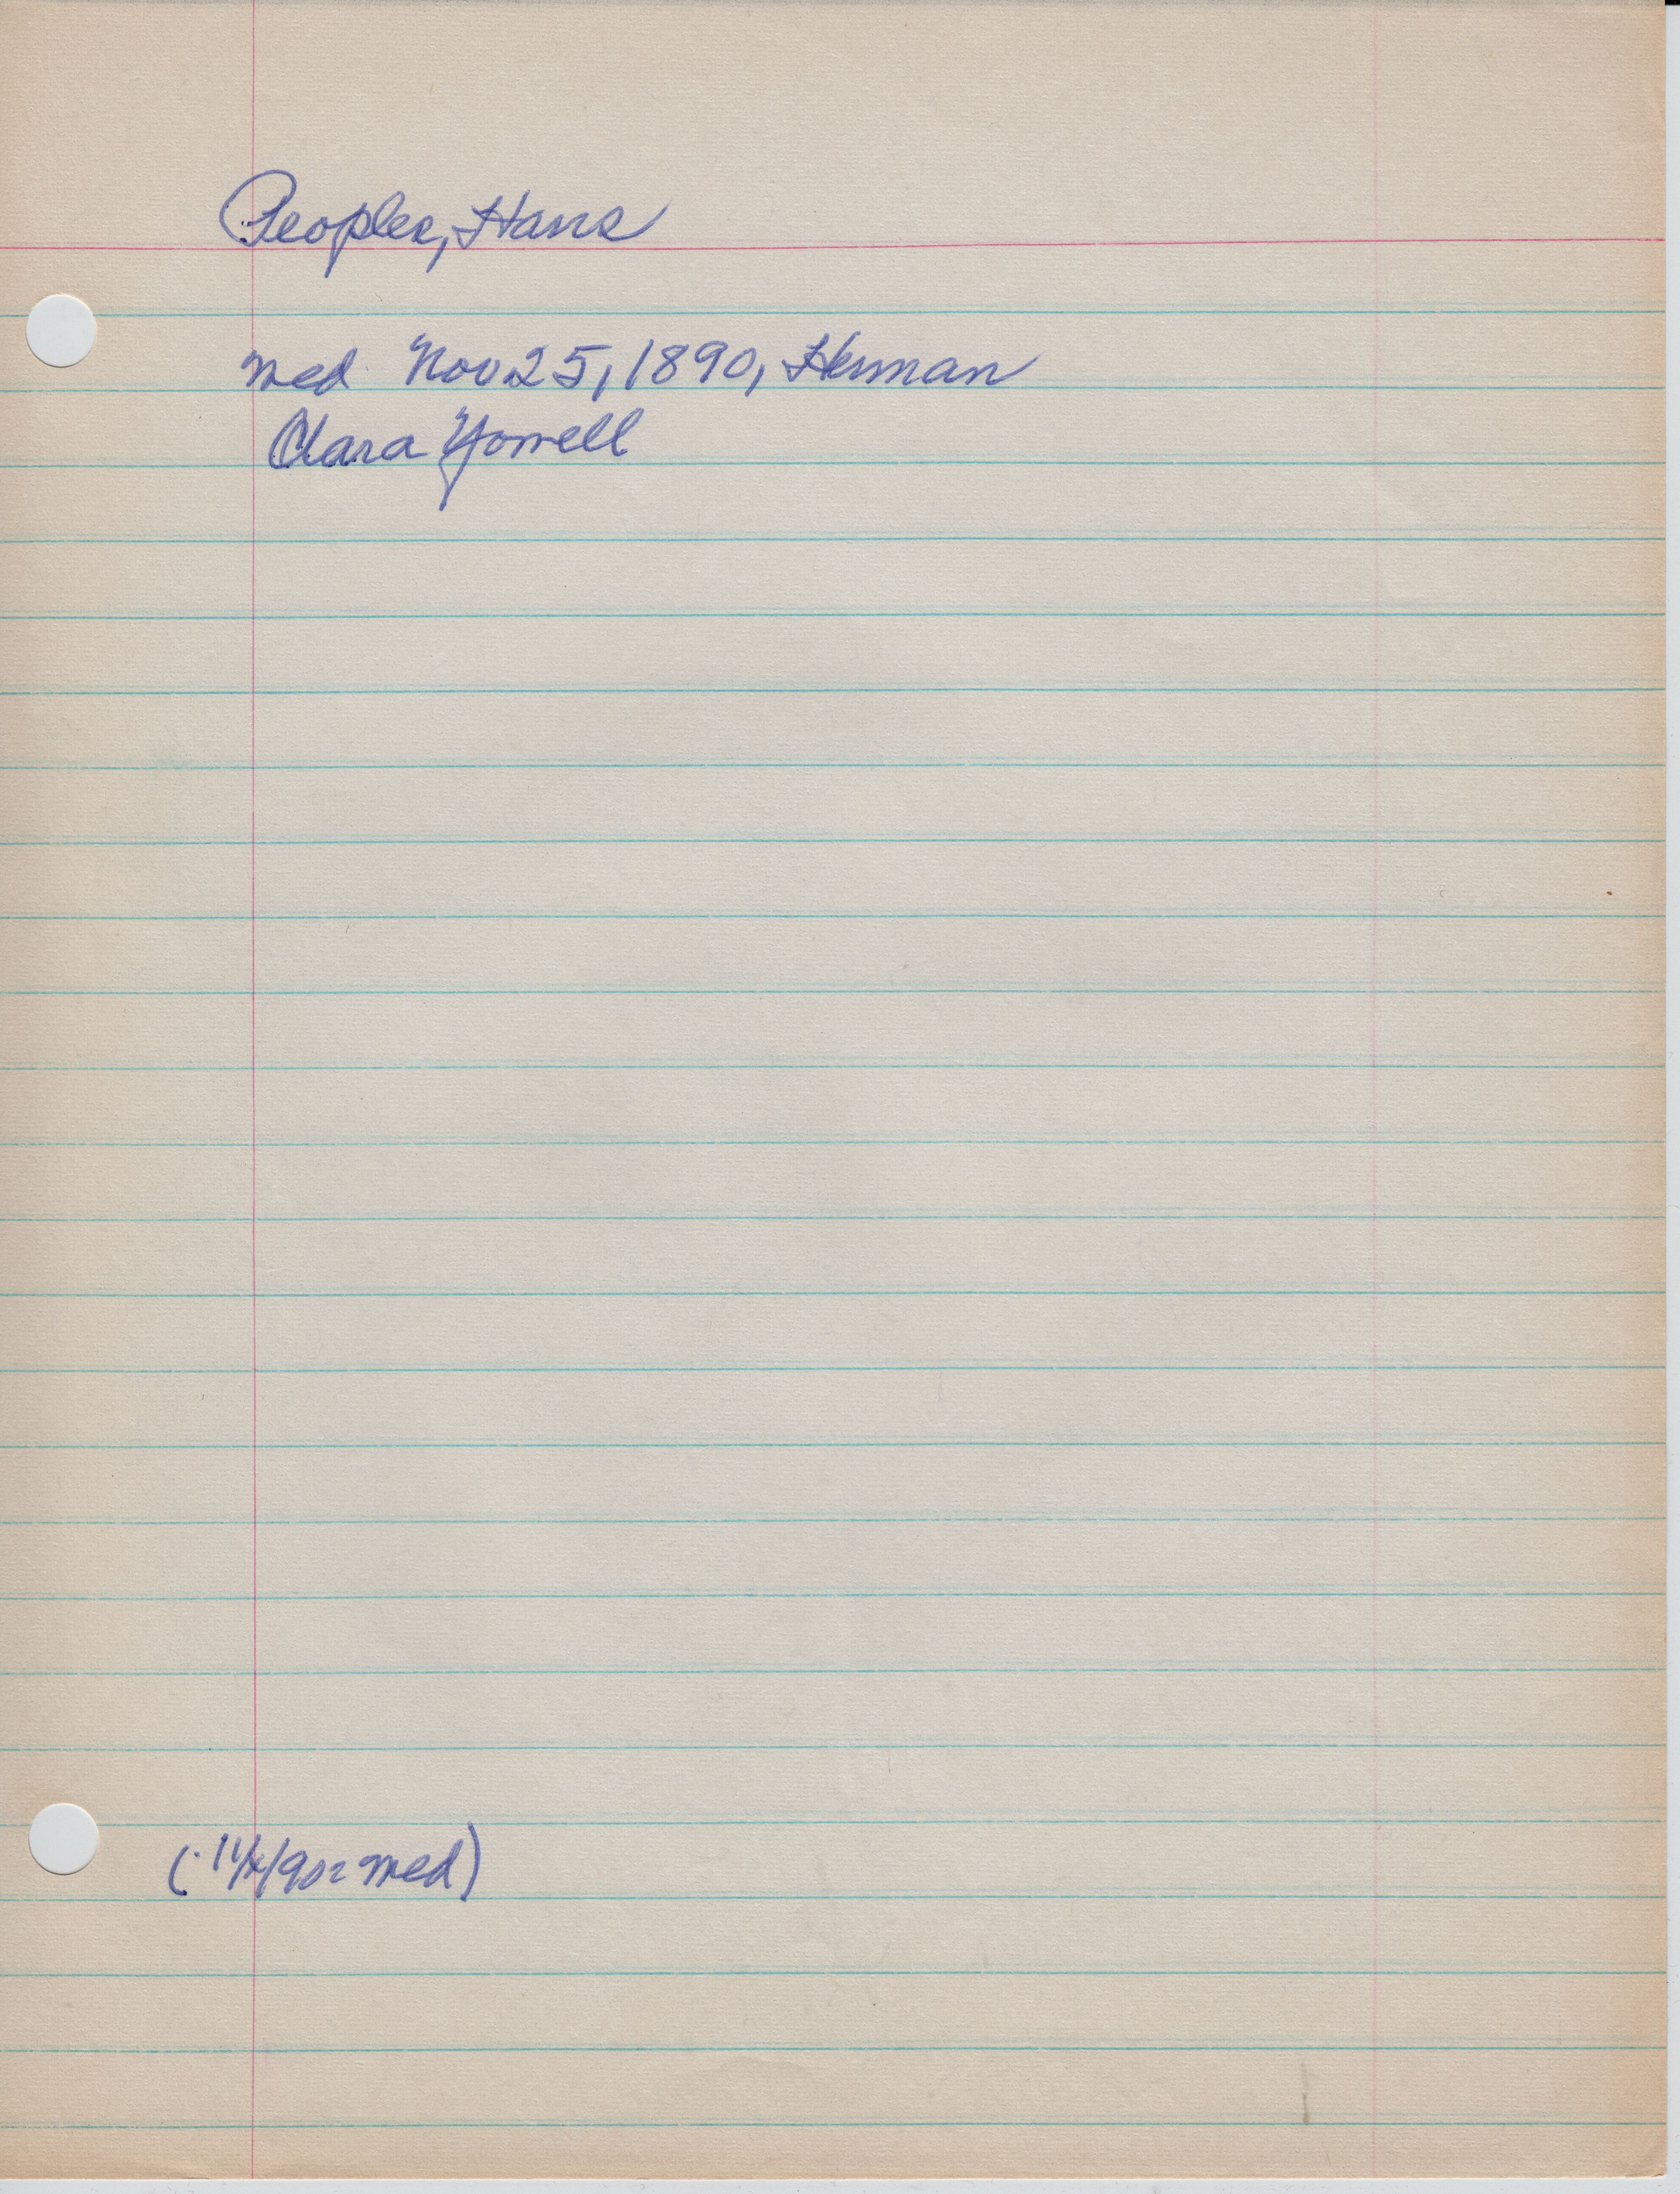 Peoples, Hans
med Nov 25, 1890, Herman
Clara Yowell
med)